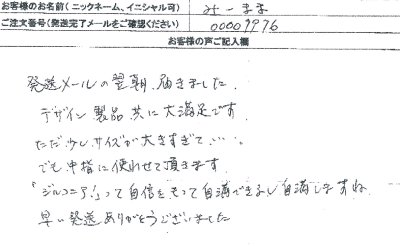 お客様のお名前(ニックネーム、イニシャル可)
みーまま
ご注文番号(発送完了メールをご確認ください)
00007976
お客様の声ご記入欄
発送メールの翌朝、届きました。
デザイン製品共に大満足です。
ただ少しサイズが大きすぎて・・・。
でも中指に使わせて頂きます。
「ジルコニア！」って自信をもって自満できるし自満しますね
早い発送ありがとうございました